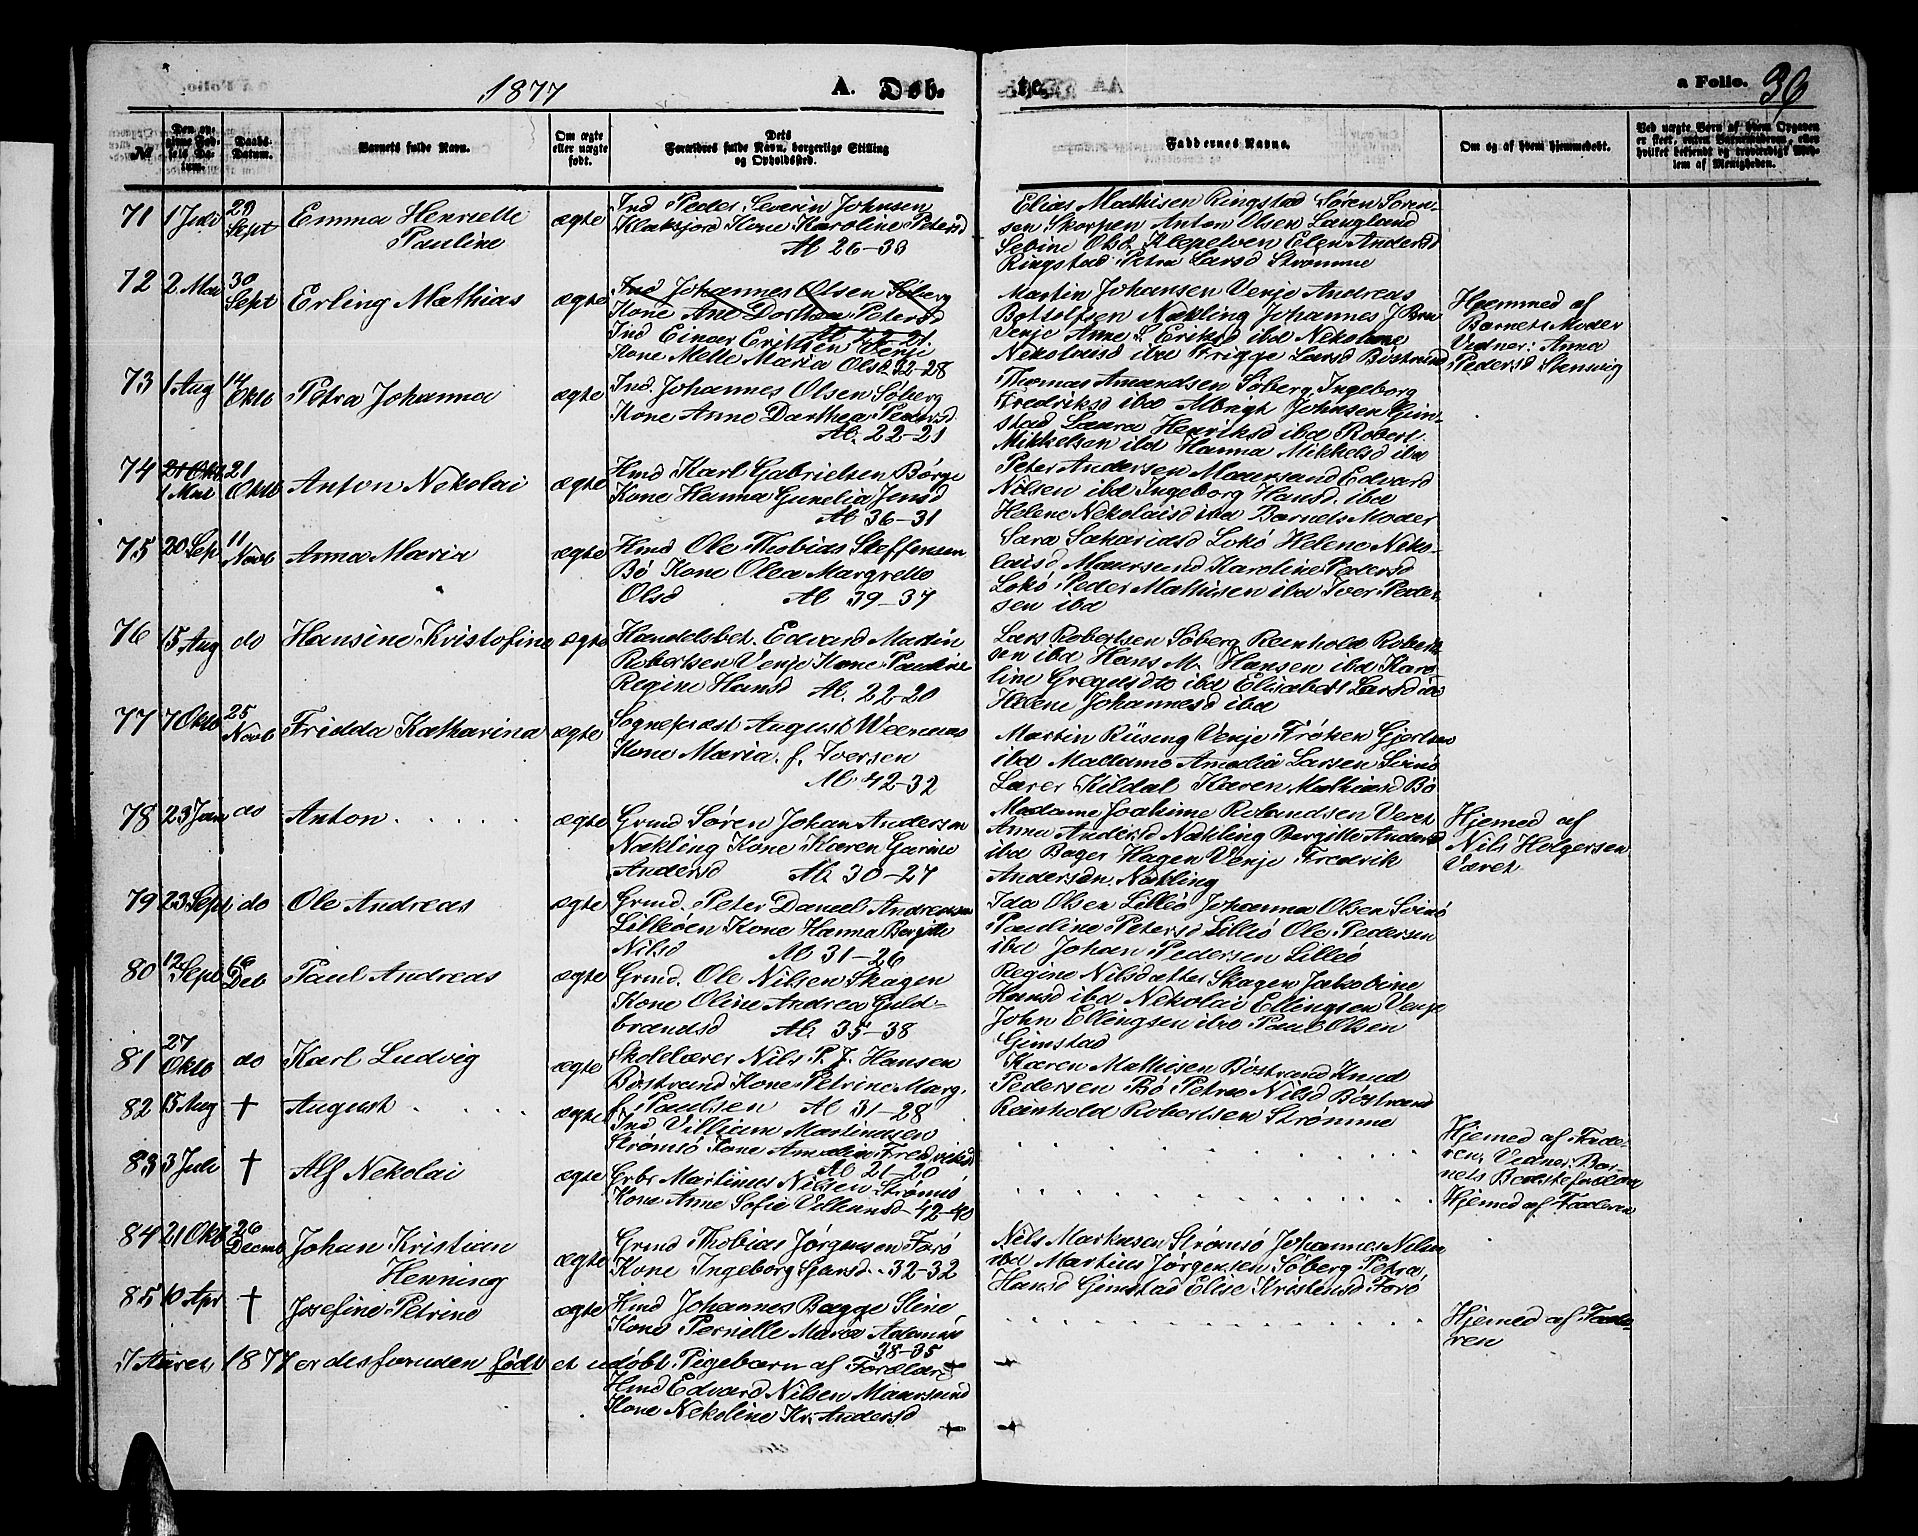 1877 A. Døb- te. a Folio. 36
№ Den angivne Fødsels Datum. Daabs-Datum. Barnets fulde Navn. Om ægte eller uægte født. Dets Forældres fulde Navn, borgerlige Stilling og Opholdssted. Faddernes Navne. Om og af hvem hjemmedøbt. Ved uægte Børn af hvem Opgaven er skeet, enten Barnemoderen, eller hvilket bekjendt og troværdigt Medlem af Menigheden.
71 1 Juli 29 Sept Emma Henriette Pauline ægte
Ind Peder Severin Johnsen
Klaksjord Kone Karoline Petersd
Al 26-33
Elias Mathisen Ringstad Søren Søren-
sen Skorpen Anton Olsen Langland
Sebine Olsd Klepelven Elen Andersd
Ringstad Petra Larsd Strømme
72 2 Mai 30 Sept Erling Mathias ægte
Ind Johannes Olsen Søberg
Kone Ane Dorthea Petersd
Al 22-21.
Ind Einar Eriksen Venje
Kone Melle Maria Olsd 32-28
Martin Johansen Venje Andreas
Bottolfsen Nækling Johannes J Brun
Venje Anne S. Eriksd ibd Nekoline
Nekolaisd ibd Frigge Larsd Bøstrand
Hjemmed af
Barnets Moder
Vidner: Anna
Pedersd Stensvig
73 1 Aug 14 Oktb Petra Johanna ægte
Ind. Johannes Olsen Søberg
Kone Anne Dorthea Petersd
Al. 22-21
Thomas Amandsen Søberg Ingeborg
Fredriksd ibd Albrigt Johnsen Gim-
stad Laura Henriksd ibd Robert
Mikkelsen ibd Hanna Mikkelsd ibd
74 21 Oktb 1 Mai 21 Oktb Anton Nekolai ægte
Hmd Karl Gabrielsen Børge
Kone Hanna Gunelia Jensd
Al 36-31
Peter Andersen Maursund Edvard
Nilsen ibd Ingeborg Hansd. ibd
Helene Nekolaisd ibd Barnets Moder
75 20 Sep 11 Novb Anna Maria ægte
Hmd Ole Thobias Steffensen
Bø Kone Olea Margrethe
Olsd Al 39-37
Sara Sakariasd Lokø Helene Neko-
laisd Maursund Karoline Pedersd
Lokø Peder Mathisen ibd Iver Peder-
sen ibd
76 15 Aug do Hansine Kristofine ægte
Handelsbet. Edvard Martin
Robertsen Venje Kone Pauline
Regine Hansd Al. 22-20
Lars Robertsen Søberg Reinhold Robert-
sen ibd Hans M. Hansen ibd Karo-
line Gregersd ibd Elisabeth Larsd ibd
Helene Johannesd ibd
77 7 Oktb 25 Novb Fridda Katharina ægte
Sogneprest August Weenaas
Kone Maria. f. Iversen
Al. 42-32
Martin Rüsing Venje Frøken Gjertsen
ibd Madame Amalia Larsen Svinø
Lærer Kildal Karen Mathiasd Bø
78 23 Jan do Anton ægte
Grmd Søren Johan Andersen
Nækling Kone Karen Garine
Andersd Al. 30-27
Madame Joakime Rolandsen Været
Anna Andersd Nækling Bergitte Andersd
ibd Bager Hagen Venje Fredrik
Andersen Nækling
Hjemed af
Nils Holgersen
Været
79 23 Sept do Ole Andreas ægte
Grmd. Peter Daniel Andreassen
Lilleøen Kone Hanna Bergitte
Nilsd Al 31-26
Ida Olsen Lilleø Johanna Olsen Svinø
Pauline Petersd Lilleø Ole Pedersen
ibd Johan Pedersen Lilleø
80 12 Sept 16 Deb Paul Andreas ægte
Grmd. Ole Nilsen Skagen
Kone Oline Andrea Guld-
brandsd Al. 35-38
Regine Nilsdatter Skagen Jakobine
Hansd ibd Nekolai Ellingsen Venje
John Ellingsen ibd Paul Olsen
Gimstad
81 27 Oktb do Karl Ludvig ægte
Skolelærer Nils P. J. Hansen
Bøstrand Kone Petrine Marg.
f. Paulsen Al 31-28
Karen Mathisen Bøstrand Knud
Pedersen Bø Petra Nilsd Bøstrand
Reinhold Robertsen Strømme
82 15 Aug † August ægte
Ind Villium Martinusen
Strømsø Kone Amalia Fredriksd
Al 21-20
Hjemed af Fade-
ren. Vidner: Bar-
nets Bedsteforældre
83 3 Juli † Alf Nekolai ægte
Grbr Martinus Nilsen Strømsø
Kone Anne Sofie Villumsd 42-40
Hjemed af Faderen
84 21 Oktb 26 Decmb Johan Kristian Henning ægte
Grmd Thobias Jørgensen Forø
Kone Ingeborg Sjursd. 32-32
Nils Markusen Strømsø Johannes Nilsen
ibd Martius Jørgensen Søberg Petra
Hansd Gimstad Elise Kristensd Forø
85 10 Apr † Josefine Petrine ægte
Hmd Johannes Bagge Steine
Kone Pernelle Maria Adamsd
38-35
Hjemed af Fade-
ren
I Aaret 1877 er desforuden født et udøbt Pigebarn af Forældre
Hmd Edvard Nilsen Maursund
Kone Nekoline Kr. Andersd